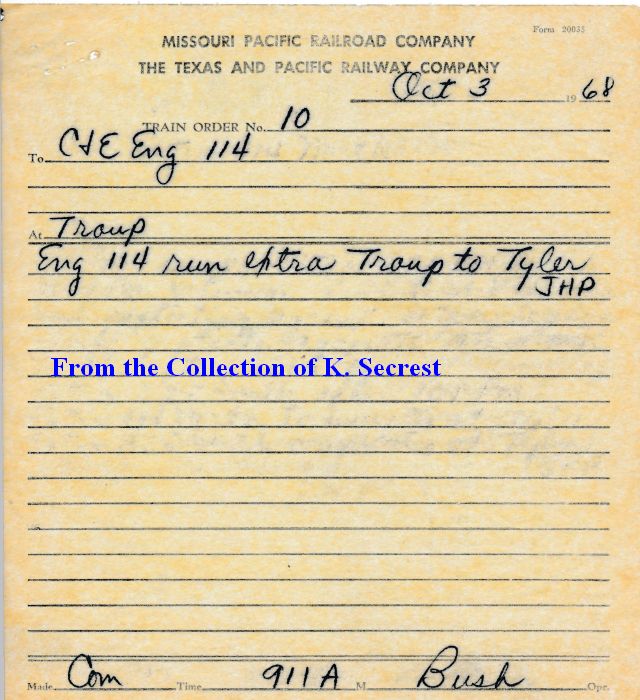 Form 20035
MISSOURI PACIFIC RAILROAD COMPANY
THE TEXAS AND PACIFIC RAILWAY COMPANY
Oct 3 1968
TRAIN ORDER No. 10
To C&E Eng 114
At Troup
Eng 114 run extra Troup to Tyler
JHP
From the Collection of K. Secrest
Made Com Time 911 A M. Bush Opr.